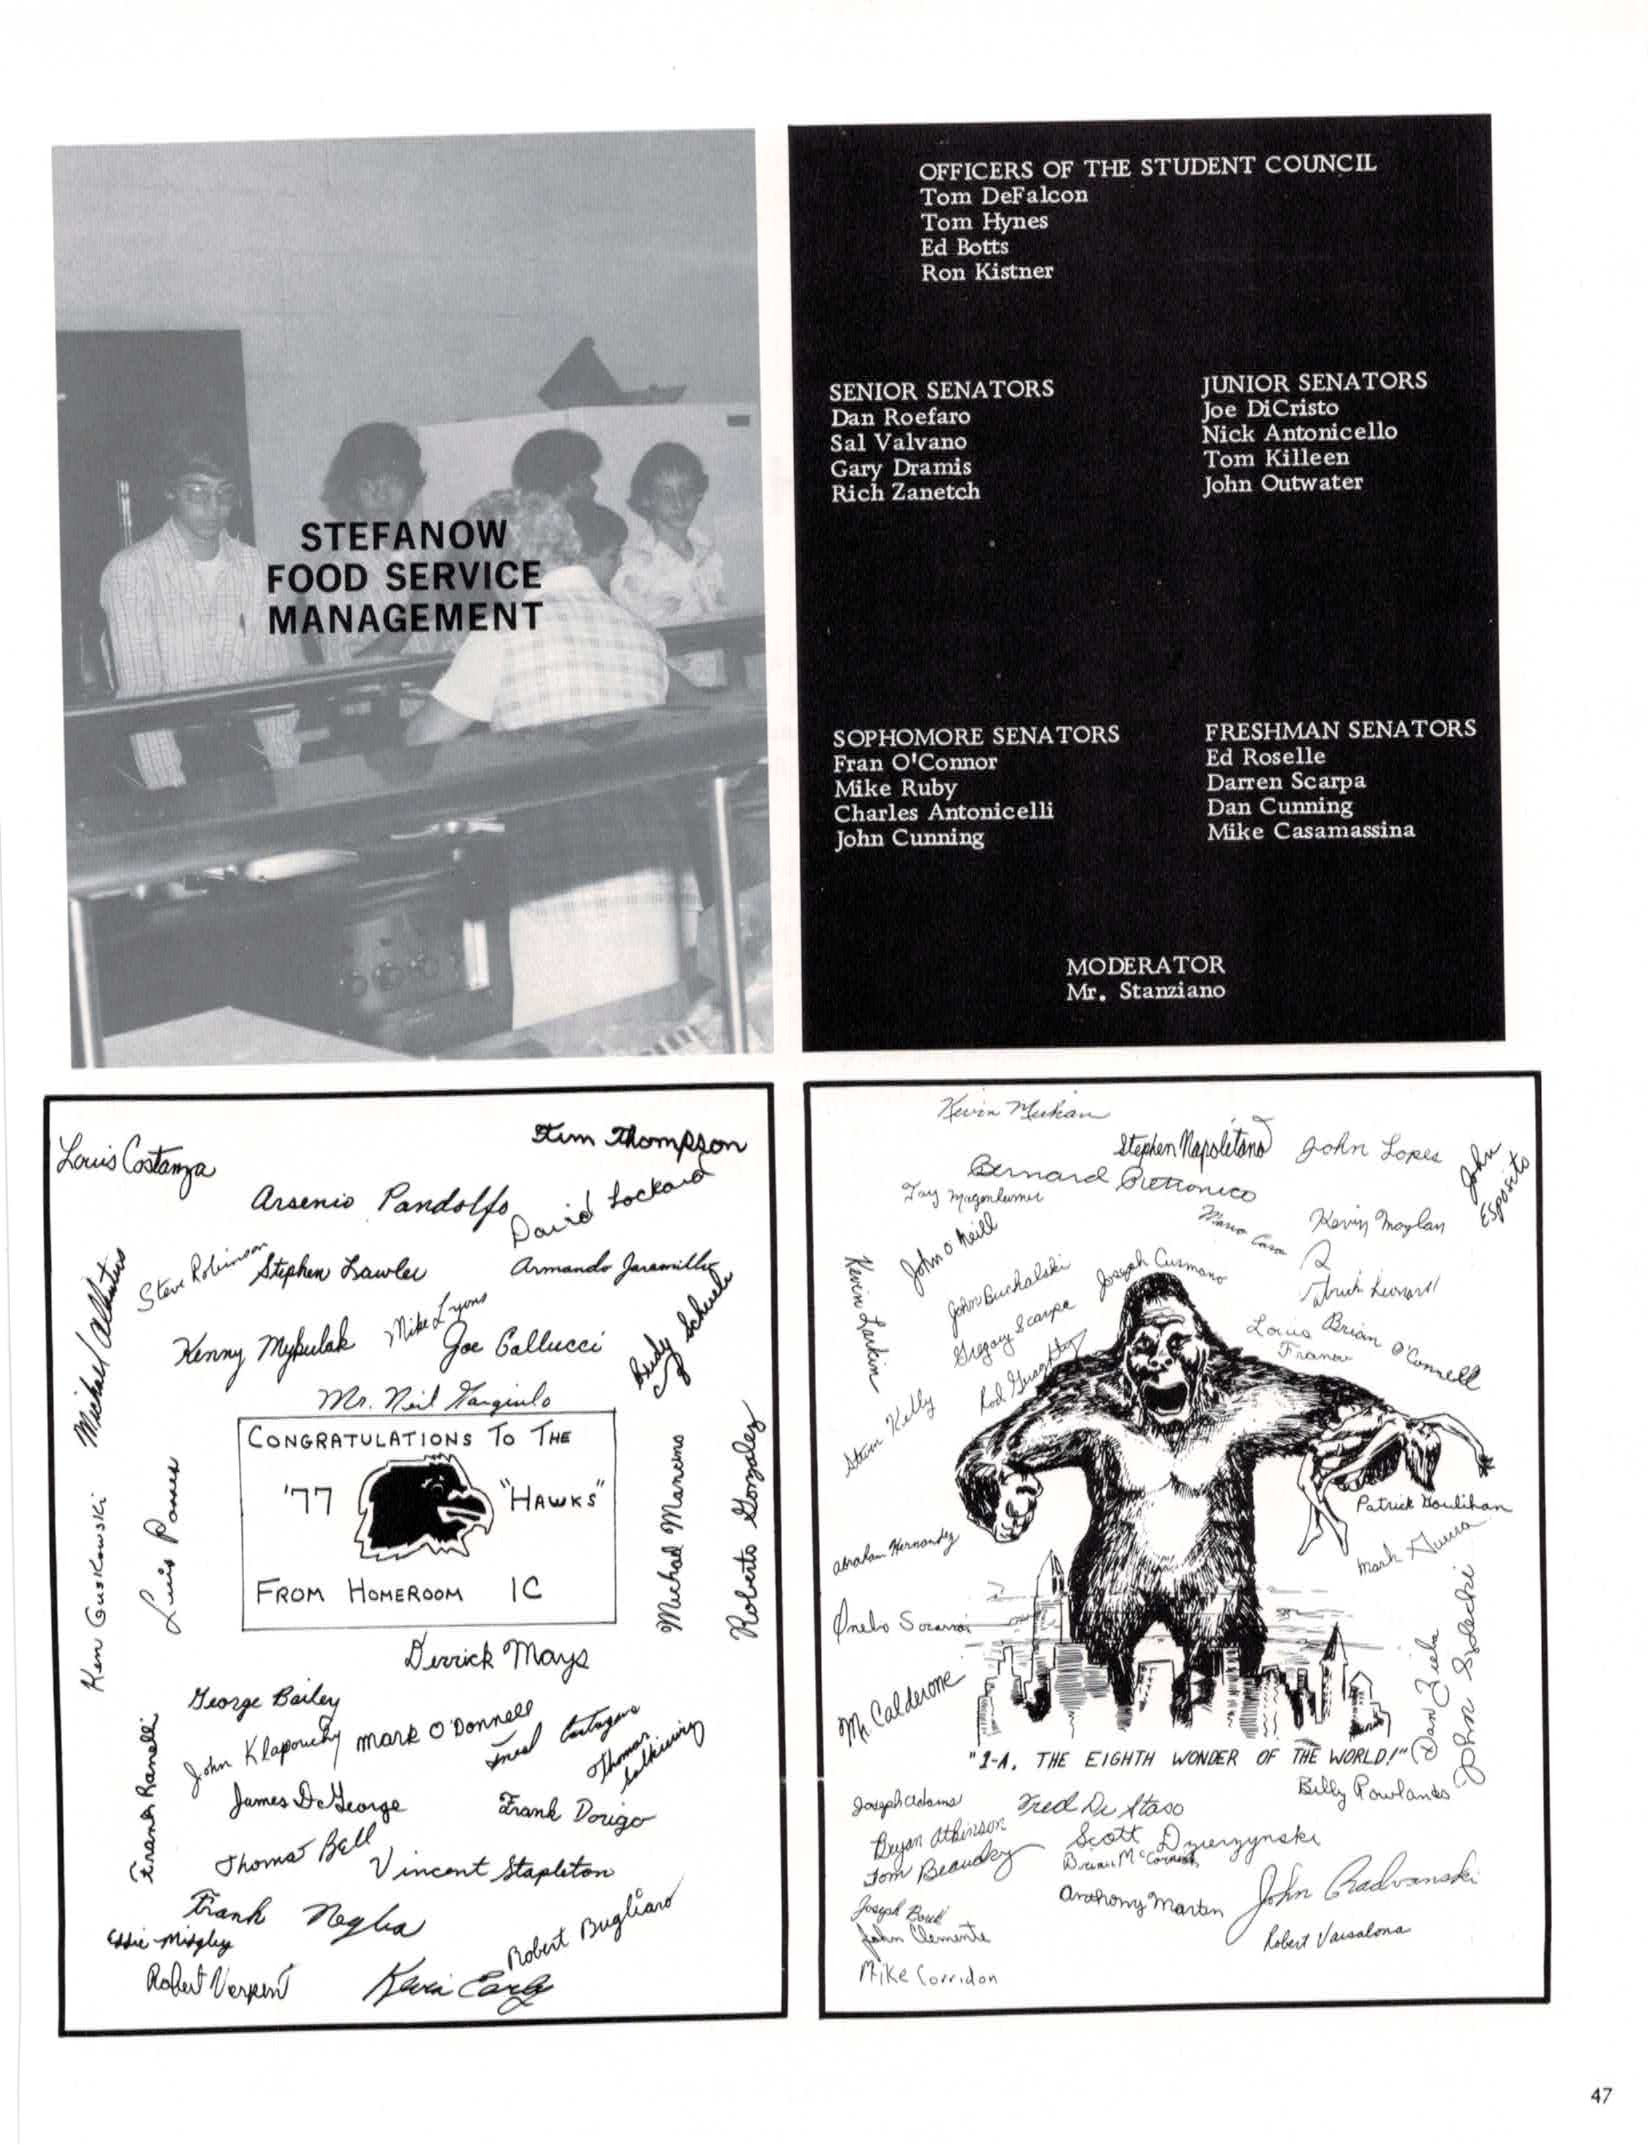 STEFANOW
FOOD SERVICE
MANAGEMENT
OFFICERS OF THE STUDENT COUNCIL
Tom DeFalcon
Tom Hynes
Ed Botts
Ron Kistner
SENIOR SENATORS
Dan Roefaro
Sal Valvano
Gary Dramis
Rich Zanetch
JUNIOR SENATORS
Joe DiCristo
Nick Antonicello
Tom Killeen
John Outwater
SOPHOMORE SENATORS
Fran O'Connor
Mike Ruby
Charles Antonicelli
John Cunning
FRESHMAN SENATORS
Ed Roselle
Darren Scarpa
Dan Cunning
Mike Casamassina
MODERATOR
Mr. Stanziano
Louis Costanza
Thompson
Arsenio Pandolfo
David Lockard
Steve Robinson
Stephen Lawler
Armando Jaramillo
Kenny Mykulak
Mike Lyons
Joe Gallucci
Rudy Schuele
Michael
Mr. Neil Gargiulo
CONGRATULATIONS TO THE
'77 "HAWKS"
FROM HOMEROOM 1C
Ken Guskowski
Luis
Michael Mancino
Roberto Gonzalez
Derrick Mays
George Bailey
John Klapouchy
Mark O'Donnell
Cartagena
Thomas
James DeGeorge
Frank Dorigo
Frank Ranelli
Thomas Bell
Vincent Stapleton
Frank Neglia
Eddie Midgley
Robert Bugliaro
Robert
Kevin Early
Kevin Meehan
Stephen Napoletano
John Lopes
John Esposito
Bernard Pietronico
Kevin Moylan
John O'Neill
Kevin Larkin
John Buchalski
Joseph Cusmano
Gregory Scarpa
Rod
Louis Franco
Brian O'Connell
Steve Kelly
Patrick Houlihan
Mark
Abraham Hernandez
Mr. Calderone
Dan Zieba
John
"1-A, THE EIGHTH WONDER OF THE WORLD!"
Billy Rowlands
Joseph Adams
Fred DeStaso
Bryan Atkinson
Scott Dzierzynski
Tom Beaudry
Brian McCormick
Anthony Martin
John Radvanski
Joseph
John Clemente
Robert Vaisalona
Mike Corridon
47